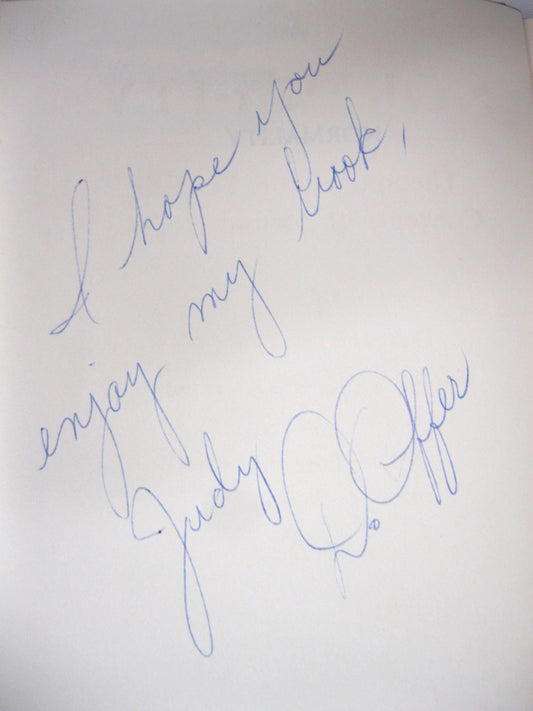 I hope you
enjoy my book,
Judy D. Offer
NORMALITY